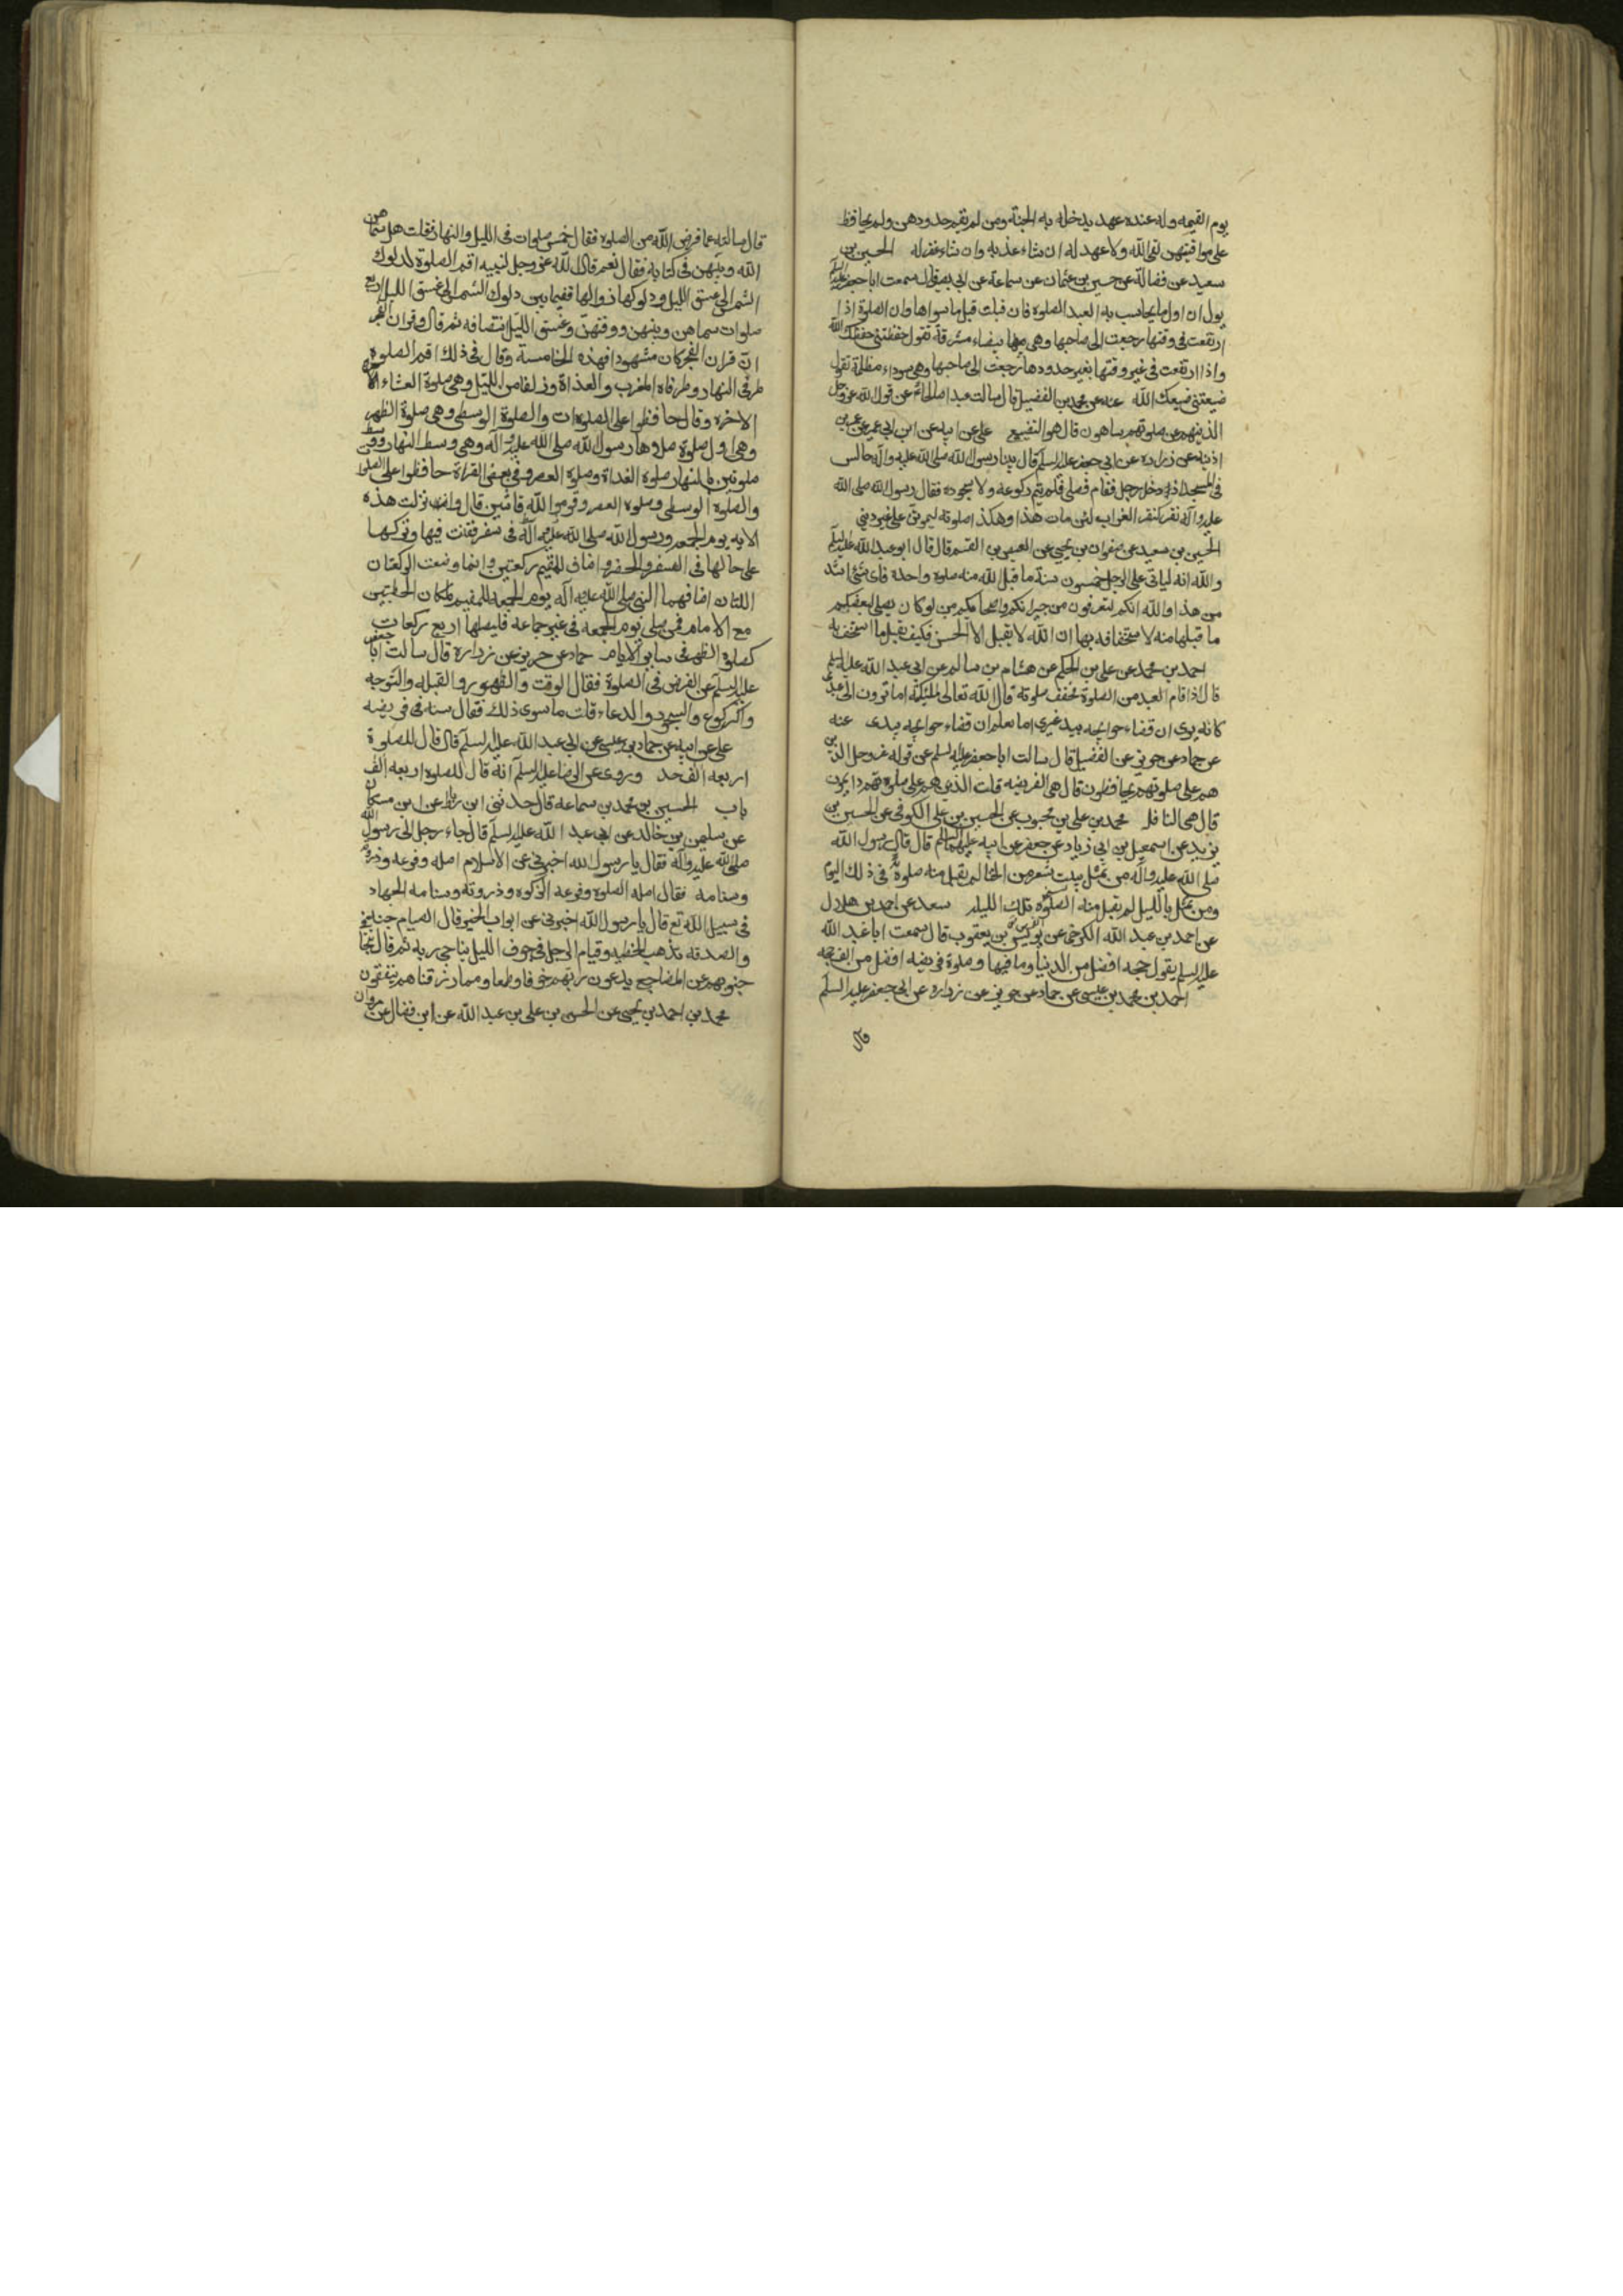 يوم القيمه وله عنده عهد يدخله به الجنة ومن لم يقم حدودهن ولم يحافظ
على مواقيتهن لقى الله ولا عهد له ان شاء عذبه وان شاء غفر له الحسين بن
سعيد عن فضالة عن حسين بن عثمان عن سماعة عن ابى بصير قال سمعت ابا جعفر عليه السلم
يقول ان اول ما يحاسب به العبد الصلوة فان قبلت قبل ما سواها وان الصلوة اذا
ارتفعت فى وقتها رجعت الى صاحبها وهى بيضاء مشرقة تقول حفظتنى حفظك الله
واذا ارتفعت فى غير وقتها بغير حدودها رجعت الى صاحبها وهى سوداء مظلمة تقول
ضيعتنى ضيعك الله عنه عن محمد بن الفضيل قال سالت عبدا صالحا عن قول الله عز وجل
الذينهم عن صلوتهم ساهون قال هو التضييع على عن ابيه عن ابن ابى عمير عن عمر بن
اذينه عن زراره عن ابى جعفر عليه السلم قال بينا رسول الله صلى الله عليه واله جالس
فى المسجد اذ دخل رجل فقام فصلى فلم يتم ركوعه ولا سجوده فقال رسول الله صلى الله
عليه واله نقر كنقر الغراب لئن مات هذا وهكذا صلوته ليموتن على غير دينى
الحسين بن سعيد عن صفوان بن يحيى عن العيص بن القسم قال قال ابو عبد الله عليه السلم
والله انه لياتى على الرجل خمسون سنة ما قبل الله منه صلوة واحدة فاى شئ اشد
من هذا والله انكم لتعرفون من جيرانكم واصحابكم من لو كان يصلى لبعضكم
ما قبلها منه لاستخفافه بها ان الله لا يقبل الا الحسن فكيف يقبل ما استخف به
احمد بن محمد عن على بن الحكم عن هشام بن سالم عن ابى عبد الله عليه السلم
قال اذا قام العبد من الصلوة فخفف صلوته قال الله تعالى لملئكته اما ترون الى عبدى
كانه يرى ان قضاء حوائجه بيد غيرى اما يعلم ان قضاء حوائجه بيدى عنه
عن حماد عن حريز عن الفضيل قال سالت ابا جعفر عليه السلم عن قوله عز وجل الذين
هم على صلوتهم يحافظون قال هى الفريضه قلت الذين هم على صلوتهم دايمون
قال هى النافله محمد بن على بن محبوب عن الحسين بن على الكوفى عن الحسين بن
يزيد عن اسمعيل بن ابى زياد عن جعفر عن ابيه عليهما السلم قال قال رسول الله
صلى الله عليه واله من تمثل ببيت شعر من الخنا لم يقبل منه صلوة فى ذلك اليوم
ومن تمثل بالليل لم تقبل منه الصلوة تلك الليله سعد عن احمد بن هلال
عن احمد بن عبد الله الكرخى عن يونس بن يعقوب قال سمعت ابا عبد الله
عليه السلم يقول حجه افضل من الدنيا وما فيها وصلوة فريضه افضل من الف حجه
احمد بن محمد بن عيسى عن حماد عن حريز عن زراره عن ابى جعفر عليه السلم
قال
قال سالته عما فرض الله من الصلوه فقال خمس صلوات فى الليل والنهار فقلت هل سماهن
الله وبينهن فى كتابه فقال نعم قال الله عز وجل لنبيه اقم الصلوة لدلوك
الشمس الى غسق الليل ودلوكها زوالها ففيما بين دلوك الشمس الى غسق الليل اربع
صلوات سماهن وبينهن ووقتهن وغسق الليل انتصافه ثم قال وقران الفجر
ان قران الفجر كان مشهودا فهذه الخامسة وقال فى ذلك اقم الصلوه
طرفى النهار وطرفاه المغرب والغداة وزلفا من الليل وهى صلوة العشاء الاخره
الاخره وقال حافظوا على الصلوات والصلوة الوسطى وهى صلوة الظهر
وهى اول صلوة صلاها رسول الله صلى الله عليه واله وهى وسط النهار ووسط
صلوتين بالنهار صلوة الغداة وصلوة العصر وفى بعض القراة حافظوا على الصلوات
والصلوة الوسطى وصلوه العصر وقوموا لله قانتين قال وانزلت هذه
الايه يوم الجمعه ورسول الله صلى الله عليه واله فى سفر فقنت فيها وتركها
على حالها فى السفر والحضر واضاف للمقيم ركعتين وانما وضعت الركعتان
اللتان اضافهما النبى صلى الله عليه اله يوم الجمعه للمقيم لمكان الخطبتين
مع الامام فمن صلى يوم الجمعه فى غير جماعة فليصلها اربع ركعات
كصلوة الظهر فى ساير الايام حماد عن حريز عن زرارة قال سالت ابا جعفر
عليه السلم عن الفرض فى الصلوة فقال الوقت والطهور والقبله والتوجه
والركوع والسجود والدعاء قلت ما سوى ذلك فقال سنه فى فريضه
على عن ابيه عن حماد بن عيسى عن ابى عبد الله عليه السلم قال قال للصلوة
اربعة الف حد وروى عن الرضا عليه السلم انه قال للصلوة اربعه الف
باب الحسين بن محمد بن سماعة قال حدثنى ابن رباط عن ابن مسكان
عن سليمن بن خالد عن ابى عبد الله عليه السلم قال جاء رجل الى رسول الله
صلى الله عليه واله فقال يا رسول الله اخبرنى عن الاسلام اصله وفرعه وذروته
وسنامه فقال اصله الصلوه وفرعه الزكوه وذروته وسنامه الجهاد
فى سبيل الله تع قال يا رسول الله اخبرنى عن ابواب الخير قال الصيام جنة
والصدقه تذهب الخطيه وقيام الرجل فى جوف الليل يناجى ربه ثم قال تتجافا
جنوبهم عن المضاجع يدعون ربهم خوفا وطمعا ومما رزقناهم ينفقون
محمد بن احمد بن يحيى عن الحسن بن على بن عبد الله عن ابن فضال عن مروان